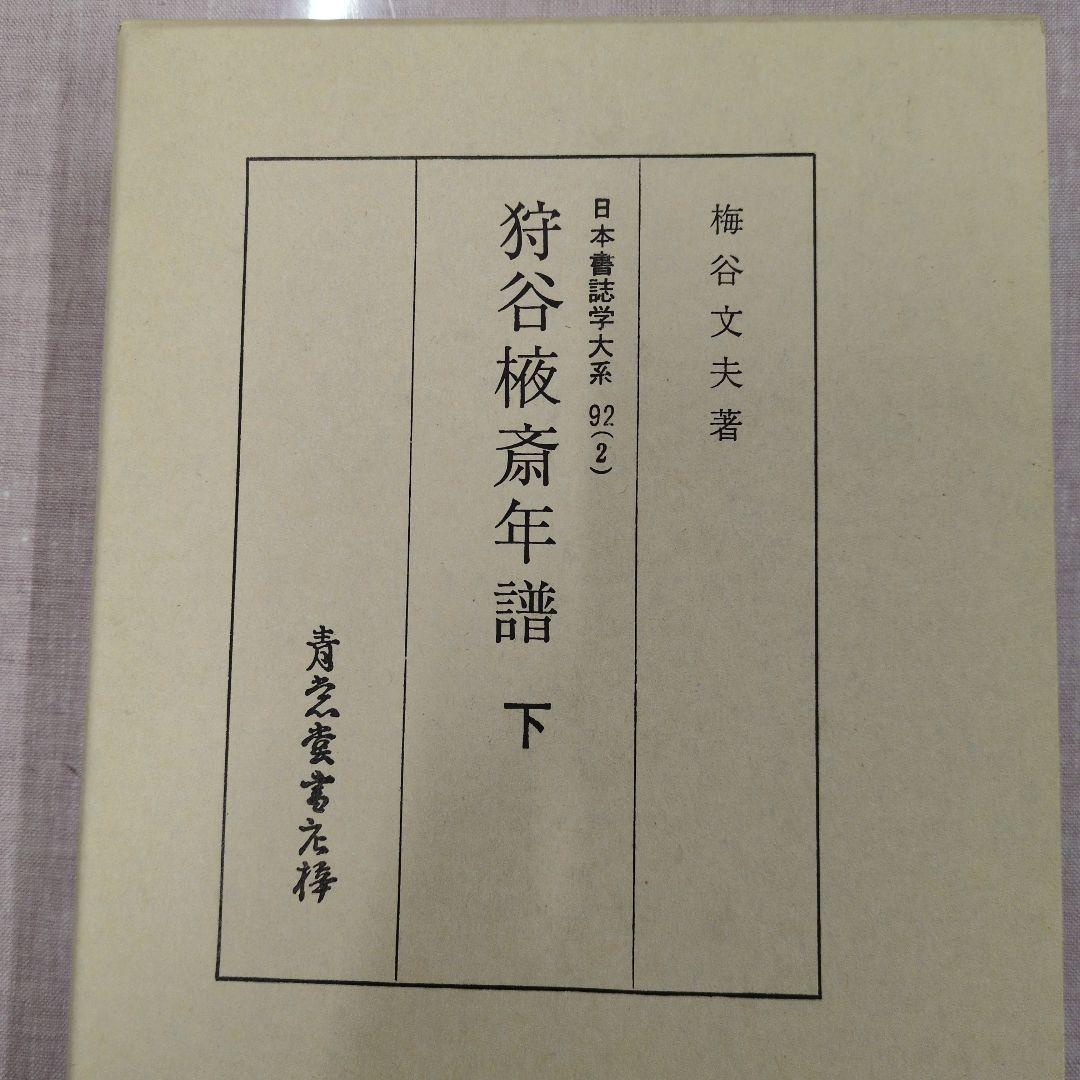 梅谷文夫著
日本書誌学大系 92(2)
狩谷棭斎年譜 下
青裳堂書店梓